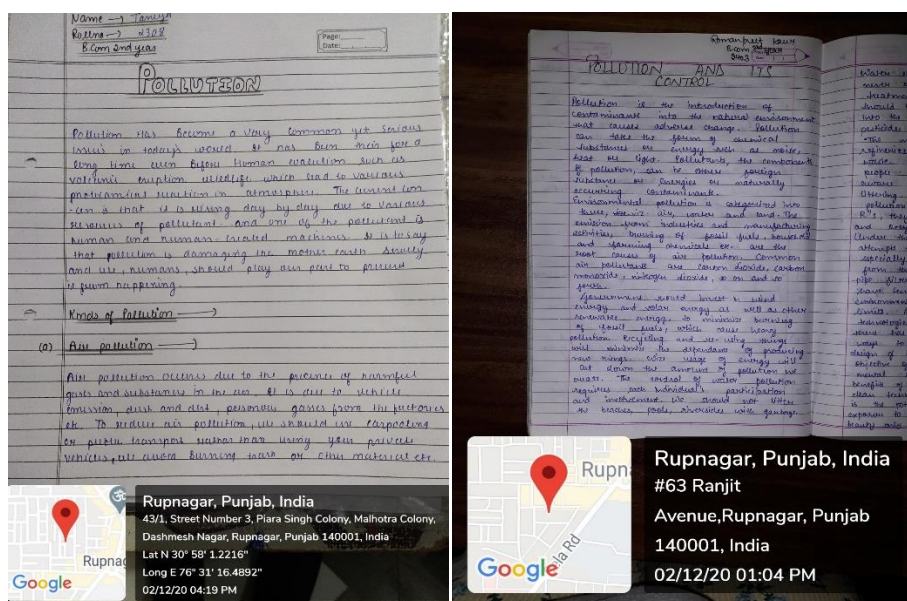 Name → Taneya
Rollno → 2308
B.Com 2nd year
Page:
Date:
POLLUTION
Pollution Has Become a very Common yet Serious
issues in today's world. It has been their for a
long time even Before Human evacution such as
volcanic eruption wildlife which lead to various
reaction in atmosphere. The current con
-cen is that it is rising day by day due to various
resources of pollutant and one of the pollutent is
Human and human-created machines. It is to say
that pollution is damaging the mother earth
and we, humans, should play our part to prevent
is from happining.
Kinds of Pollution →
(a) Air pollution →
Air pollution occurs due to the presence of harmful
gases and substances in the air. It is due to vehicle
emission, dust and dirt, poisonous gases from the factories
etc. To reduce air pollution, we should use carpooling
or public transport rather than using your private
vehicles, we avoid Burning trash or other material etc.
Rupnag
Google
Rupnagar, Punjab, India
43/1, Street Number 3, Piara Singh Colony, Malhotra Colony,
Dashmesh Nagar, Rupnagar, Punjab 140001, India
Lat N 30° 58' 1.2216"
Long E 76° 31' 16.4892"
02/12/20 04:19 PM
Ramanpreet Kaur
B.com 2nd year
2403
POLLUTION AND ITS
CONTROL
Pollution is the introduction of
contaminants into the natural environment
that causes adverse change. Pollution
can take the form of chemical
substances or energy such as noise,
heat or light. Pollutants, the components
of pollution, can be either foreign
substance or energies or naturally
occurring contaminants.
Environmental pollution is categorized into
three, air, water and land. The
emission from industries and manufacturing
activities, burning of fossil fuels, household
and farming chemicals etc. are the
root causes of air pollution. Common
air pollutants are carbon dioxide, carbon
monoxide, nitrogen dioxide, so on and so
forth.
Government should invest in wind
energy and solar energy as well as other
renewable energy, to minimize burning
of fossil fuels, which cause heavy
pollution. Recycling and re-using things
will minimize the dependance of producing
new things. usage of energy will
cut down the amount of pollution we
The control of water pollution
requires each individual's participation
and involvement. We should not litter
the beaches, pools, riversides with garbage.
Rupna
la Rd
Google
Rupnagar, Punjab, India
#63 Ranjit
Avenue,Rupnagar, Punjab
140001, India
02/12/20 01:04 PM